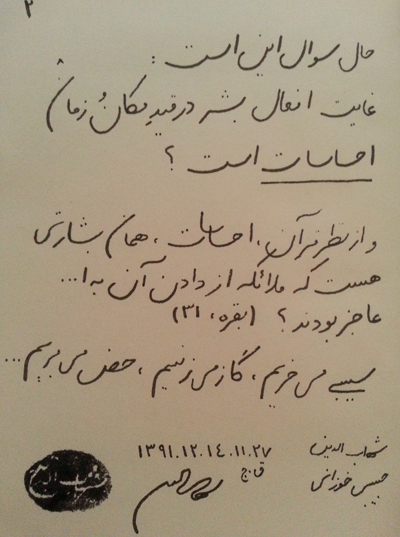 ۲
حال سوال این است :
غایت افعال بشر در قیدِ مکانُ زمان
احساسات است ؟
و از نظر قرآن ، احساسات ، همان بشارتی
هست که ملائکه از دادن آن به ا...
عاجز بودند ؟ (بقره، ۳۱)
سیبی می خریم ، گاز می زنیم ، حض می بریم ...
شهاب الدین
۱۳۹۱.۱۲.۱۴.۱۱.۲۷
ق ج